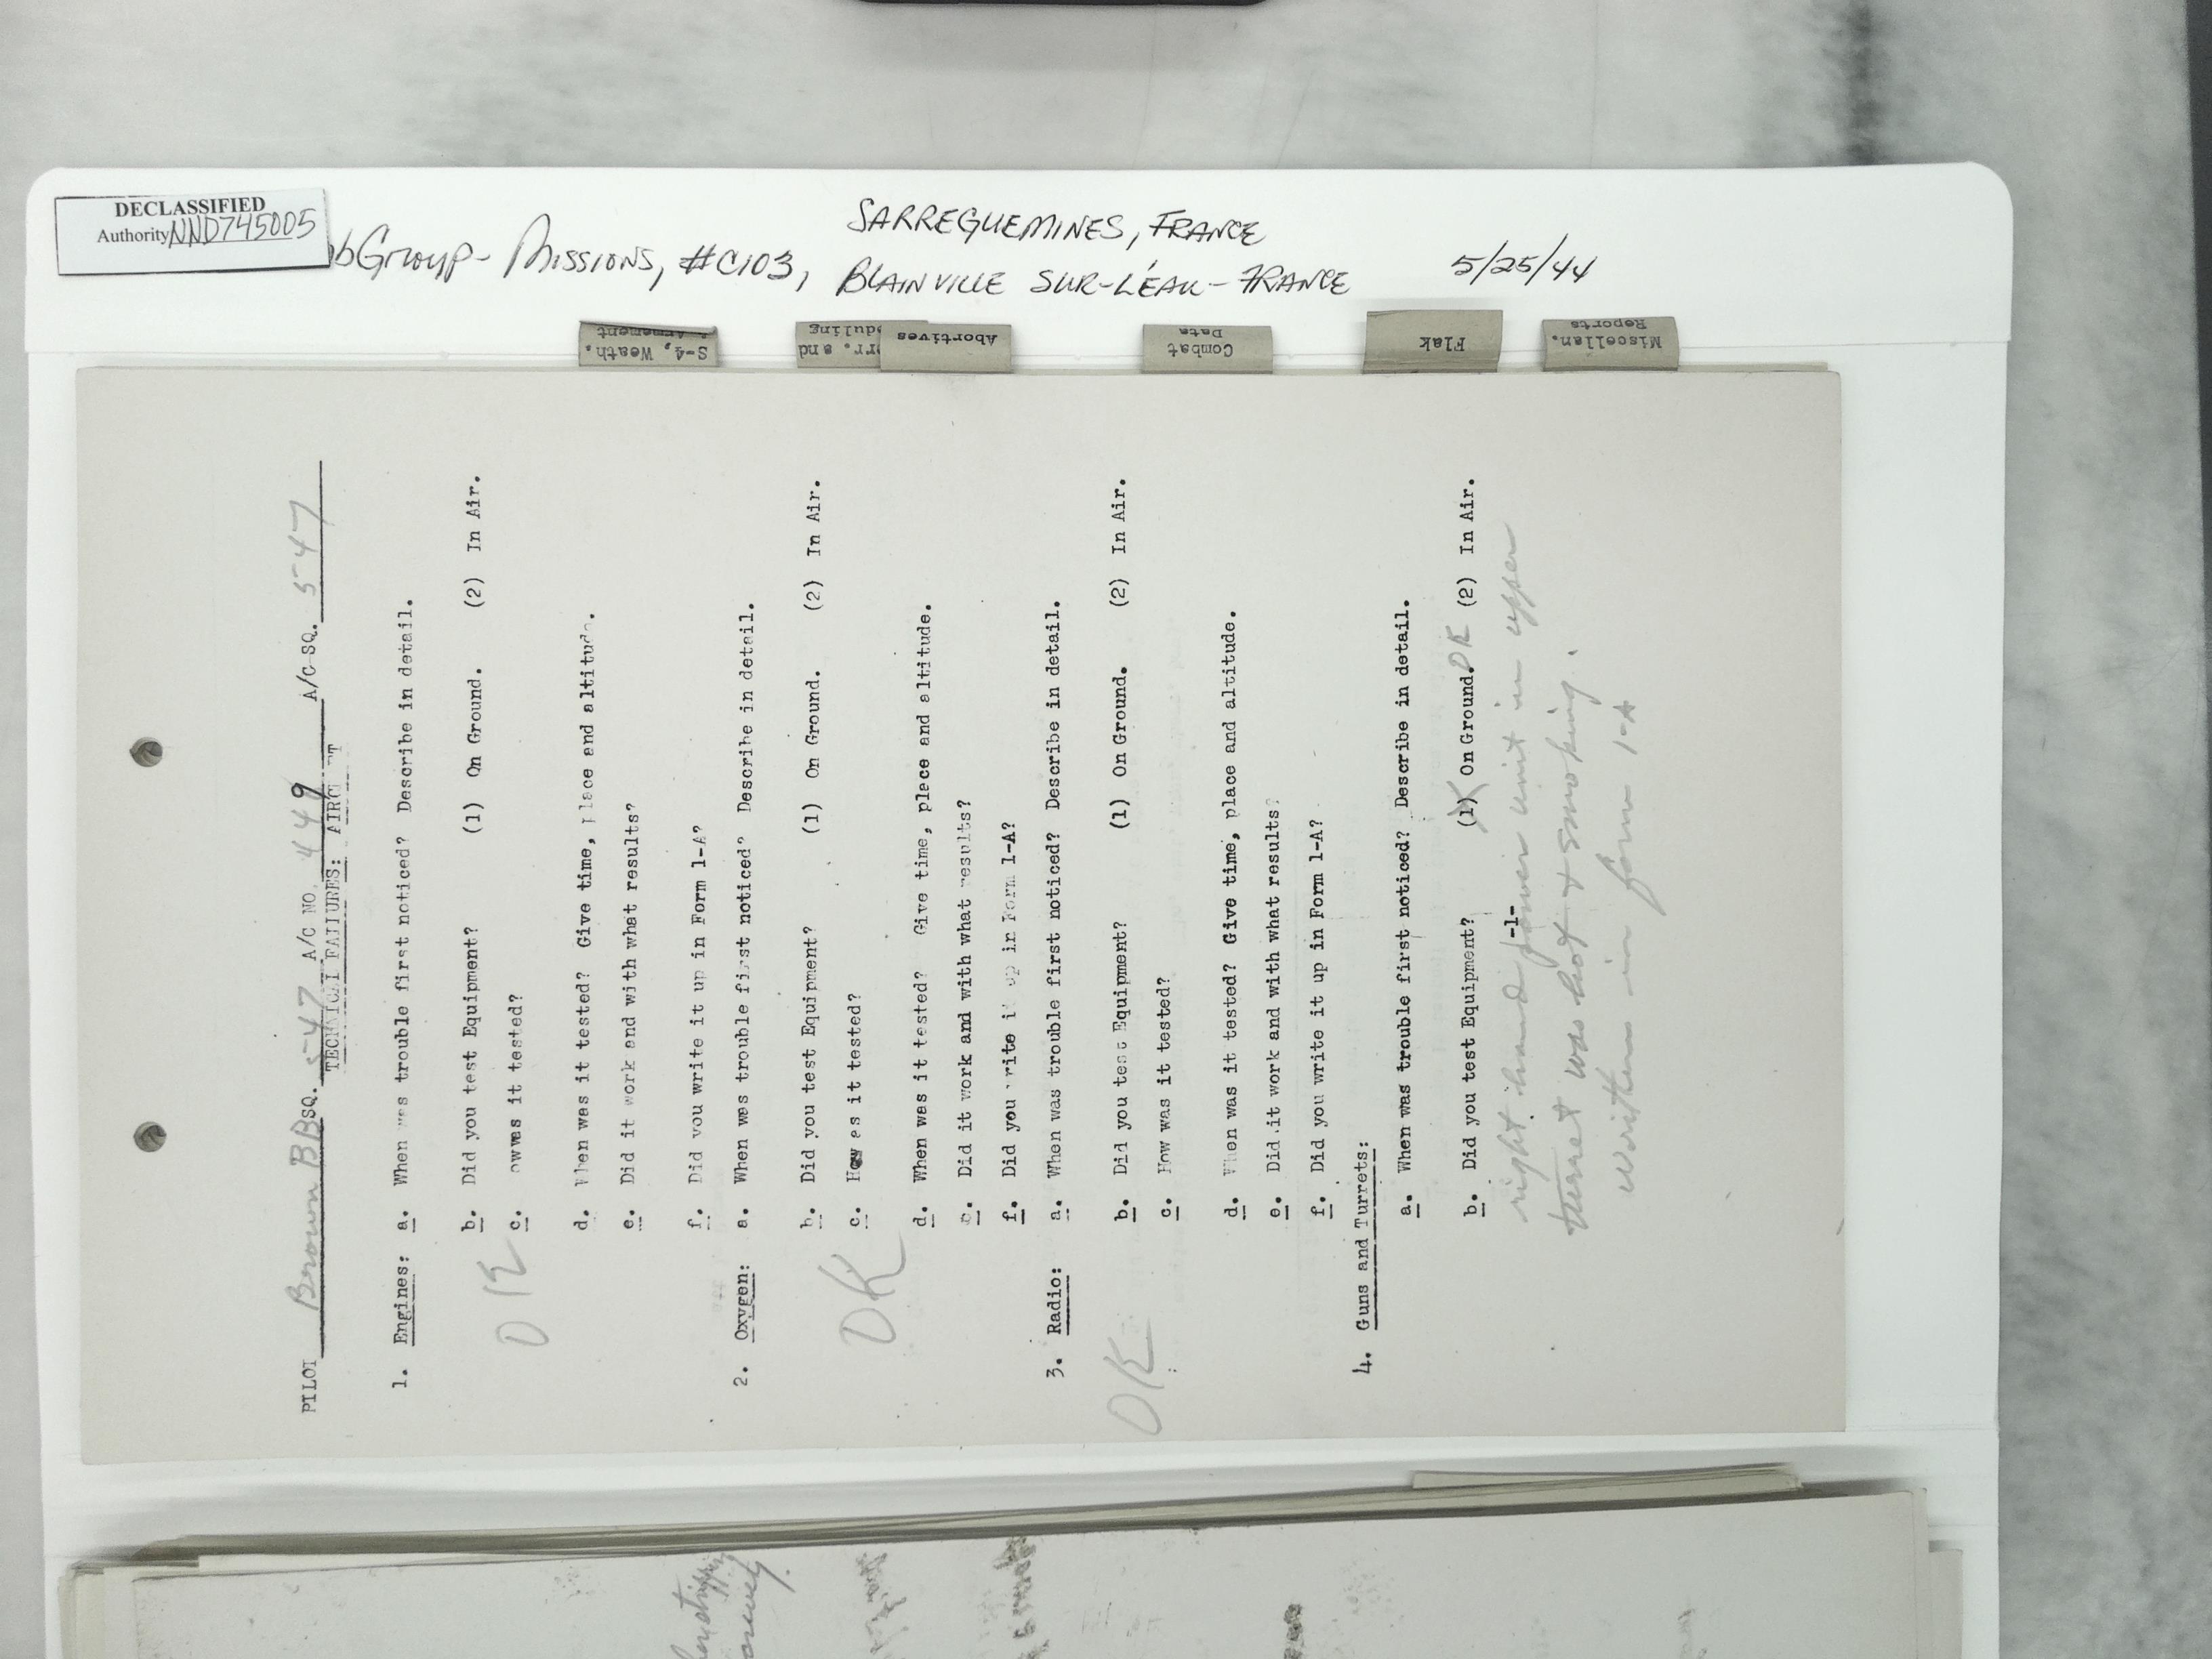 DECLASSIFIED
Authority NND745005
bGroup- Missions, #C103,
SARREGUEMINES, FRANCE
BLAINVILLE SUR-L'EAU-FRANCE
5/25/44
S-4, Weath.
& Armement
rr. and
duling
Abortives
Combat
Data
Flak
Miscellan.
Reports
PILOT Brown BB SQ. 547 A/C NO. 449 A/C SQ. 547
TECHNICAL FAILURES: AIRC
1. Engines: a. When was trouble first noticed? Describe in detail.
b. Did you test Equipment? (1) On Ground. (2) In Air.
OK
c. owwas it tested?
d. When was it tested? Give time, place and altitude.
e. Did it work and with what results?
f. Did you write it up in Form 1-A?
2. Oxygen: a. When was trouble first noticed? Describe in detail.
b. Did you test Equipment? (1) On Ground. (2) In Air.
OK
c. How as it tested?
d. When was it tested? Give time, place and altitude.
e. Did it work and with what results?
f. Did you write it up in Form 1-A?
3. Radio: a. When was trouble first noticed? Describe in detail.
OK
b. Did you test Equipment? (1) On Ground. (2) In Air.
c. How was it tested?
d. When was it tested? Give time, place and altitude.
e. Did it work and with what results?
f. Did you write it up in Form 1-A?
4. Guns and Turrets:
a. When was trouble first noticed? Describe in detail.
b. Did you test Equipment? (1) On Ground. OK (2) In Air.
-1-
right hand power unit in upper
turret was hot & smoking.
Written in form 1-A